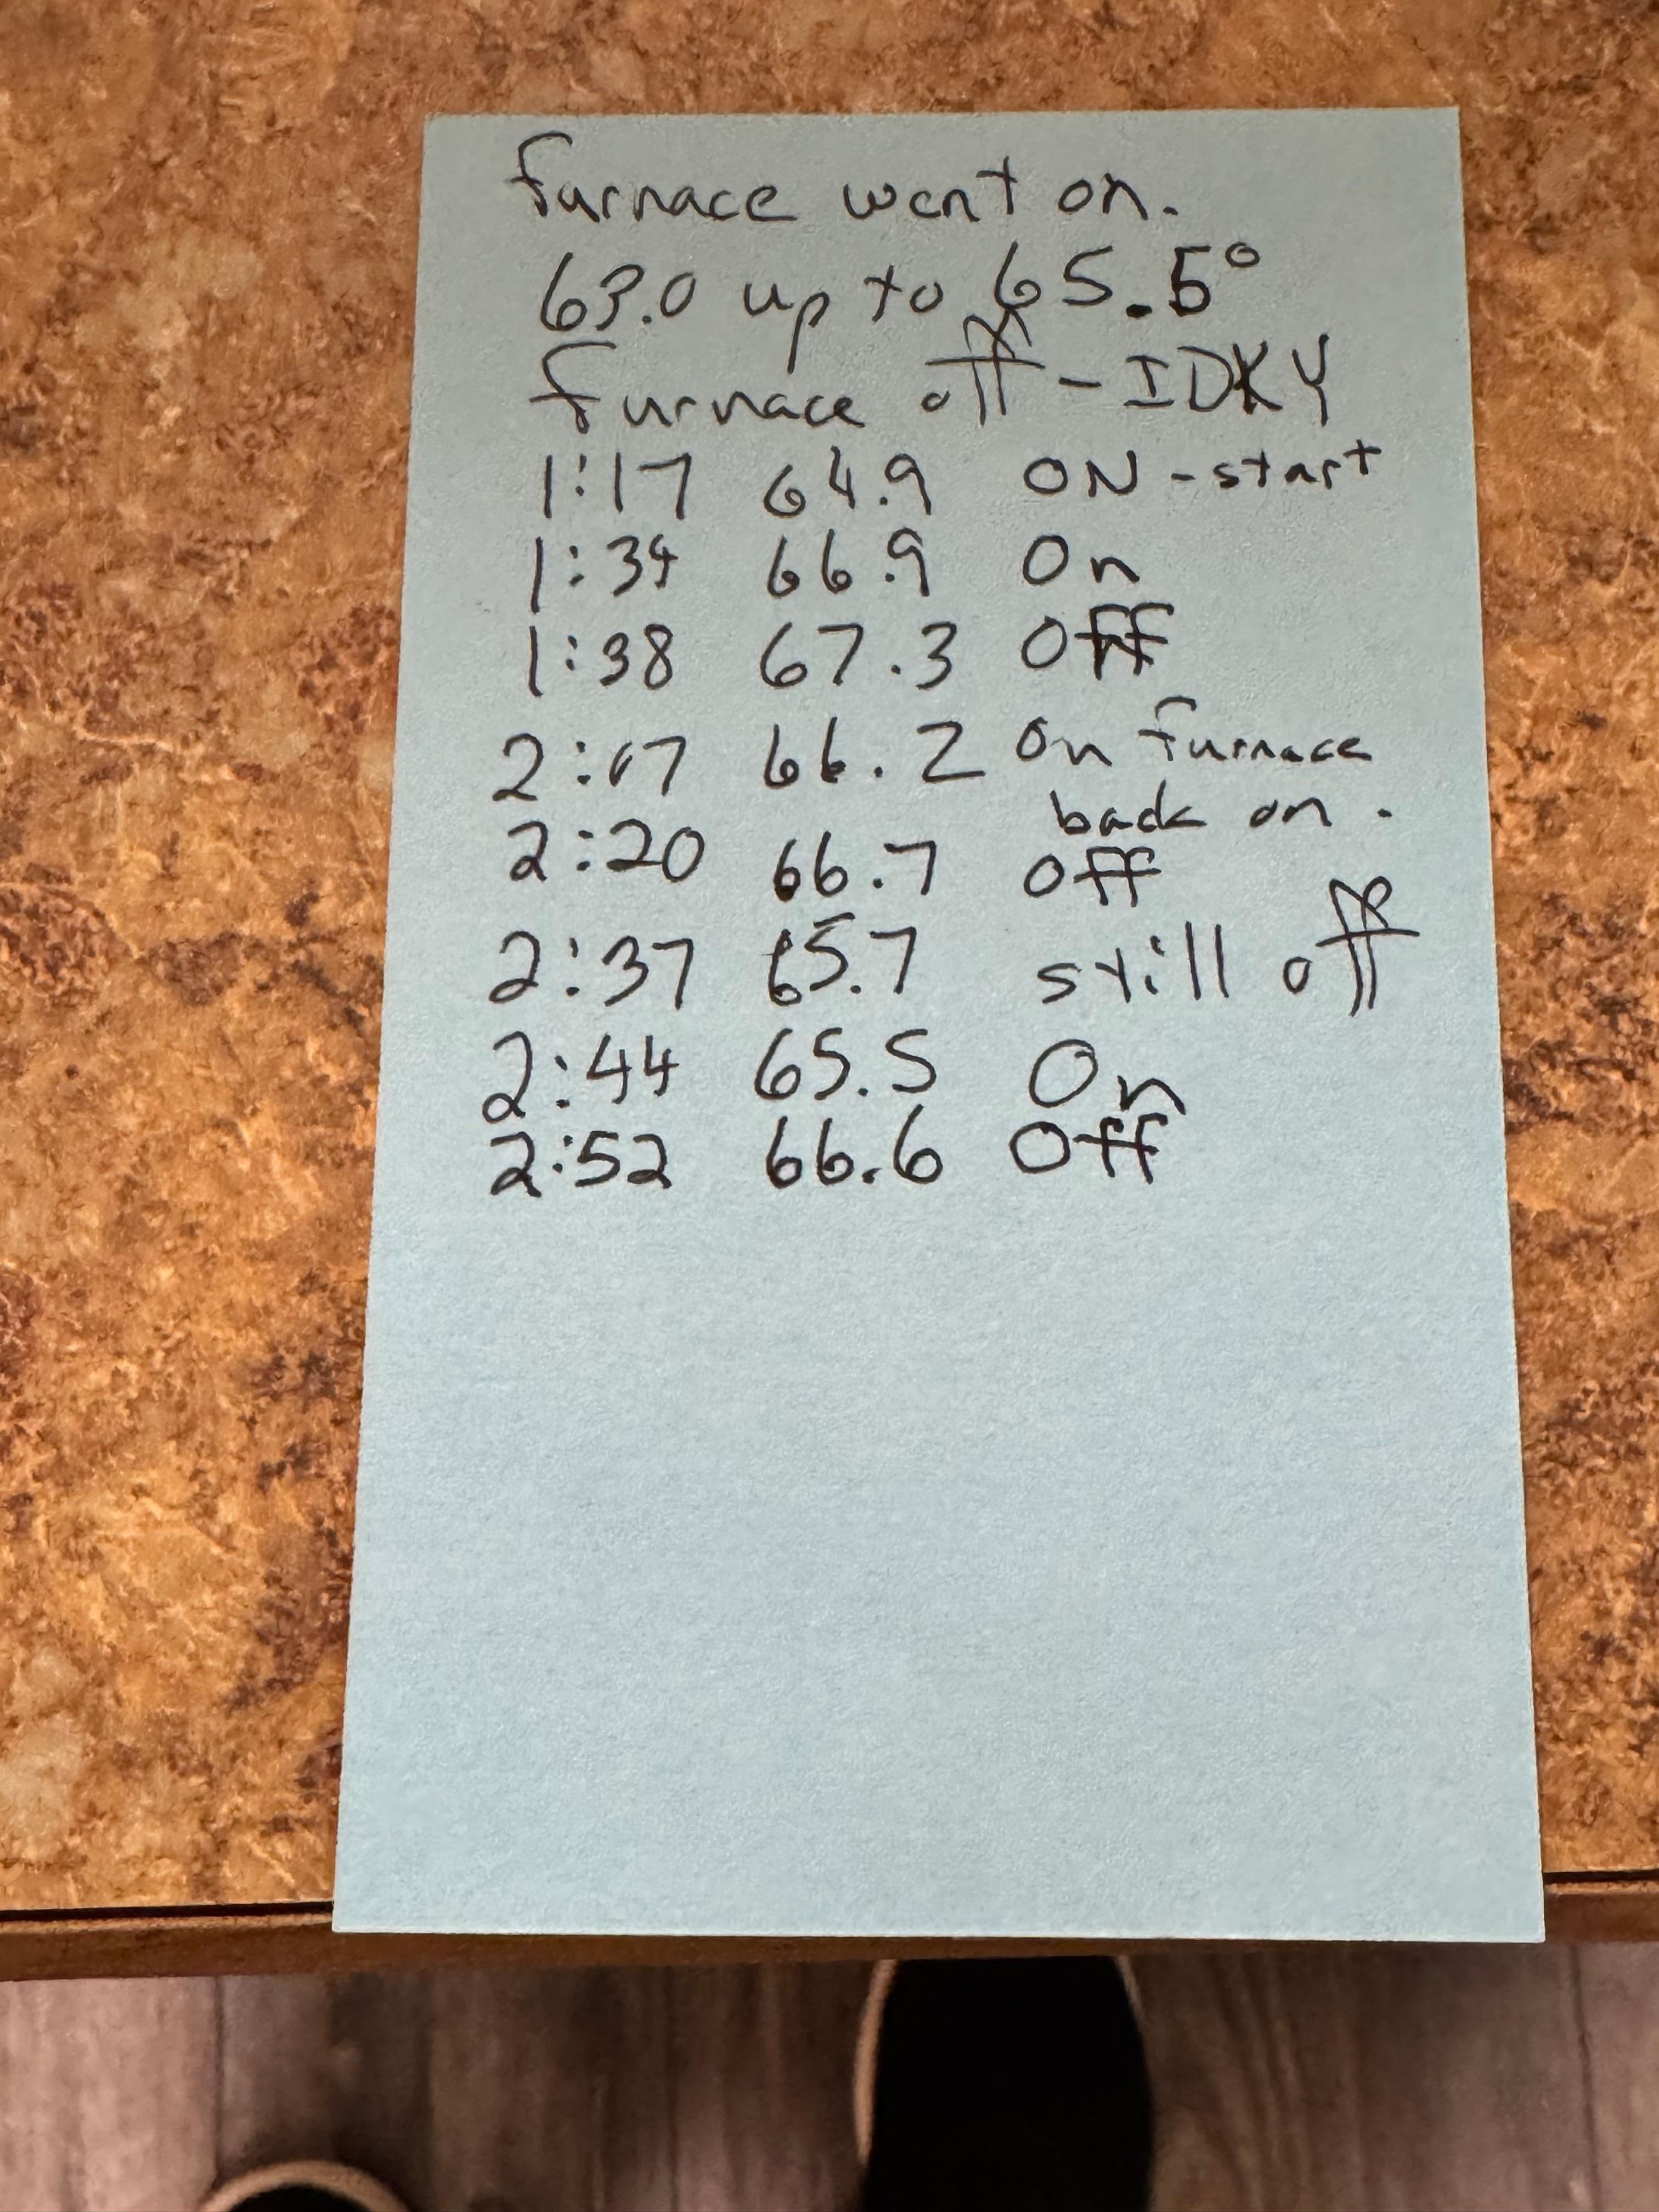 furnace went on.
63.0 up to 65.5°
furnace off - IDKY
1:17 64.9 ON - start
1:34 66.9 On
1:38 67.3 Off
2:17 66.2 On furnace
back on.
2:20 66.7 Off
2:37 65.7 still off
2:44 65.5 On
2:52 66.6 Off